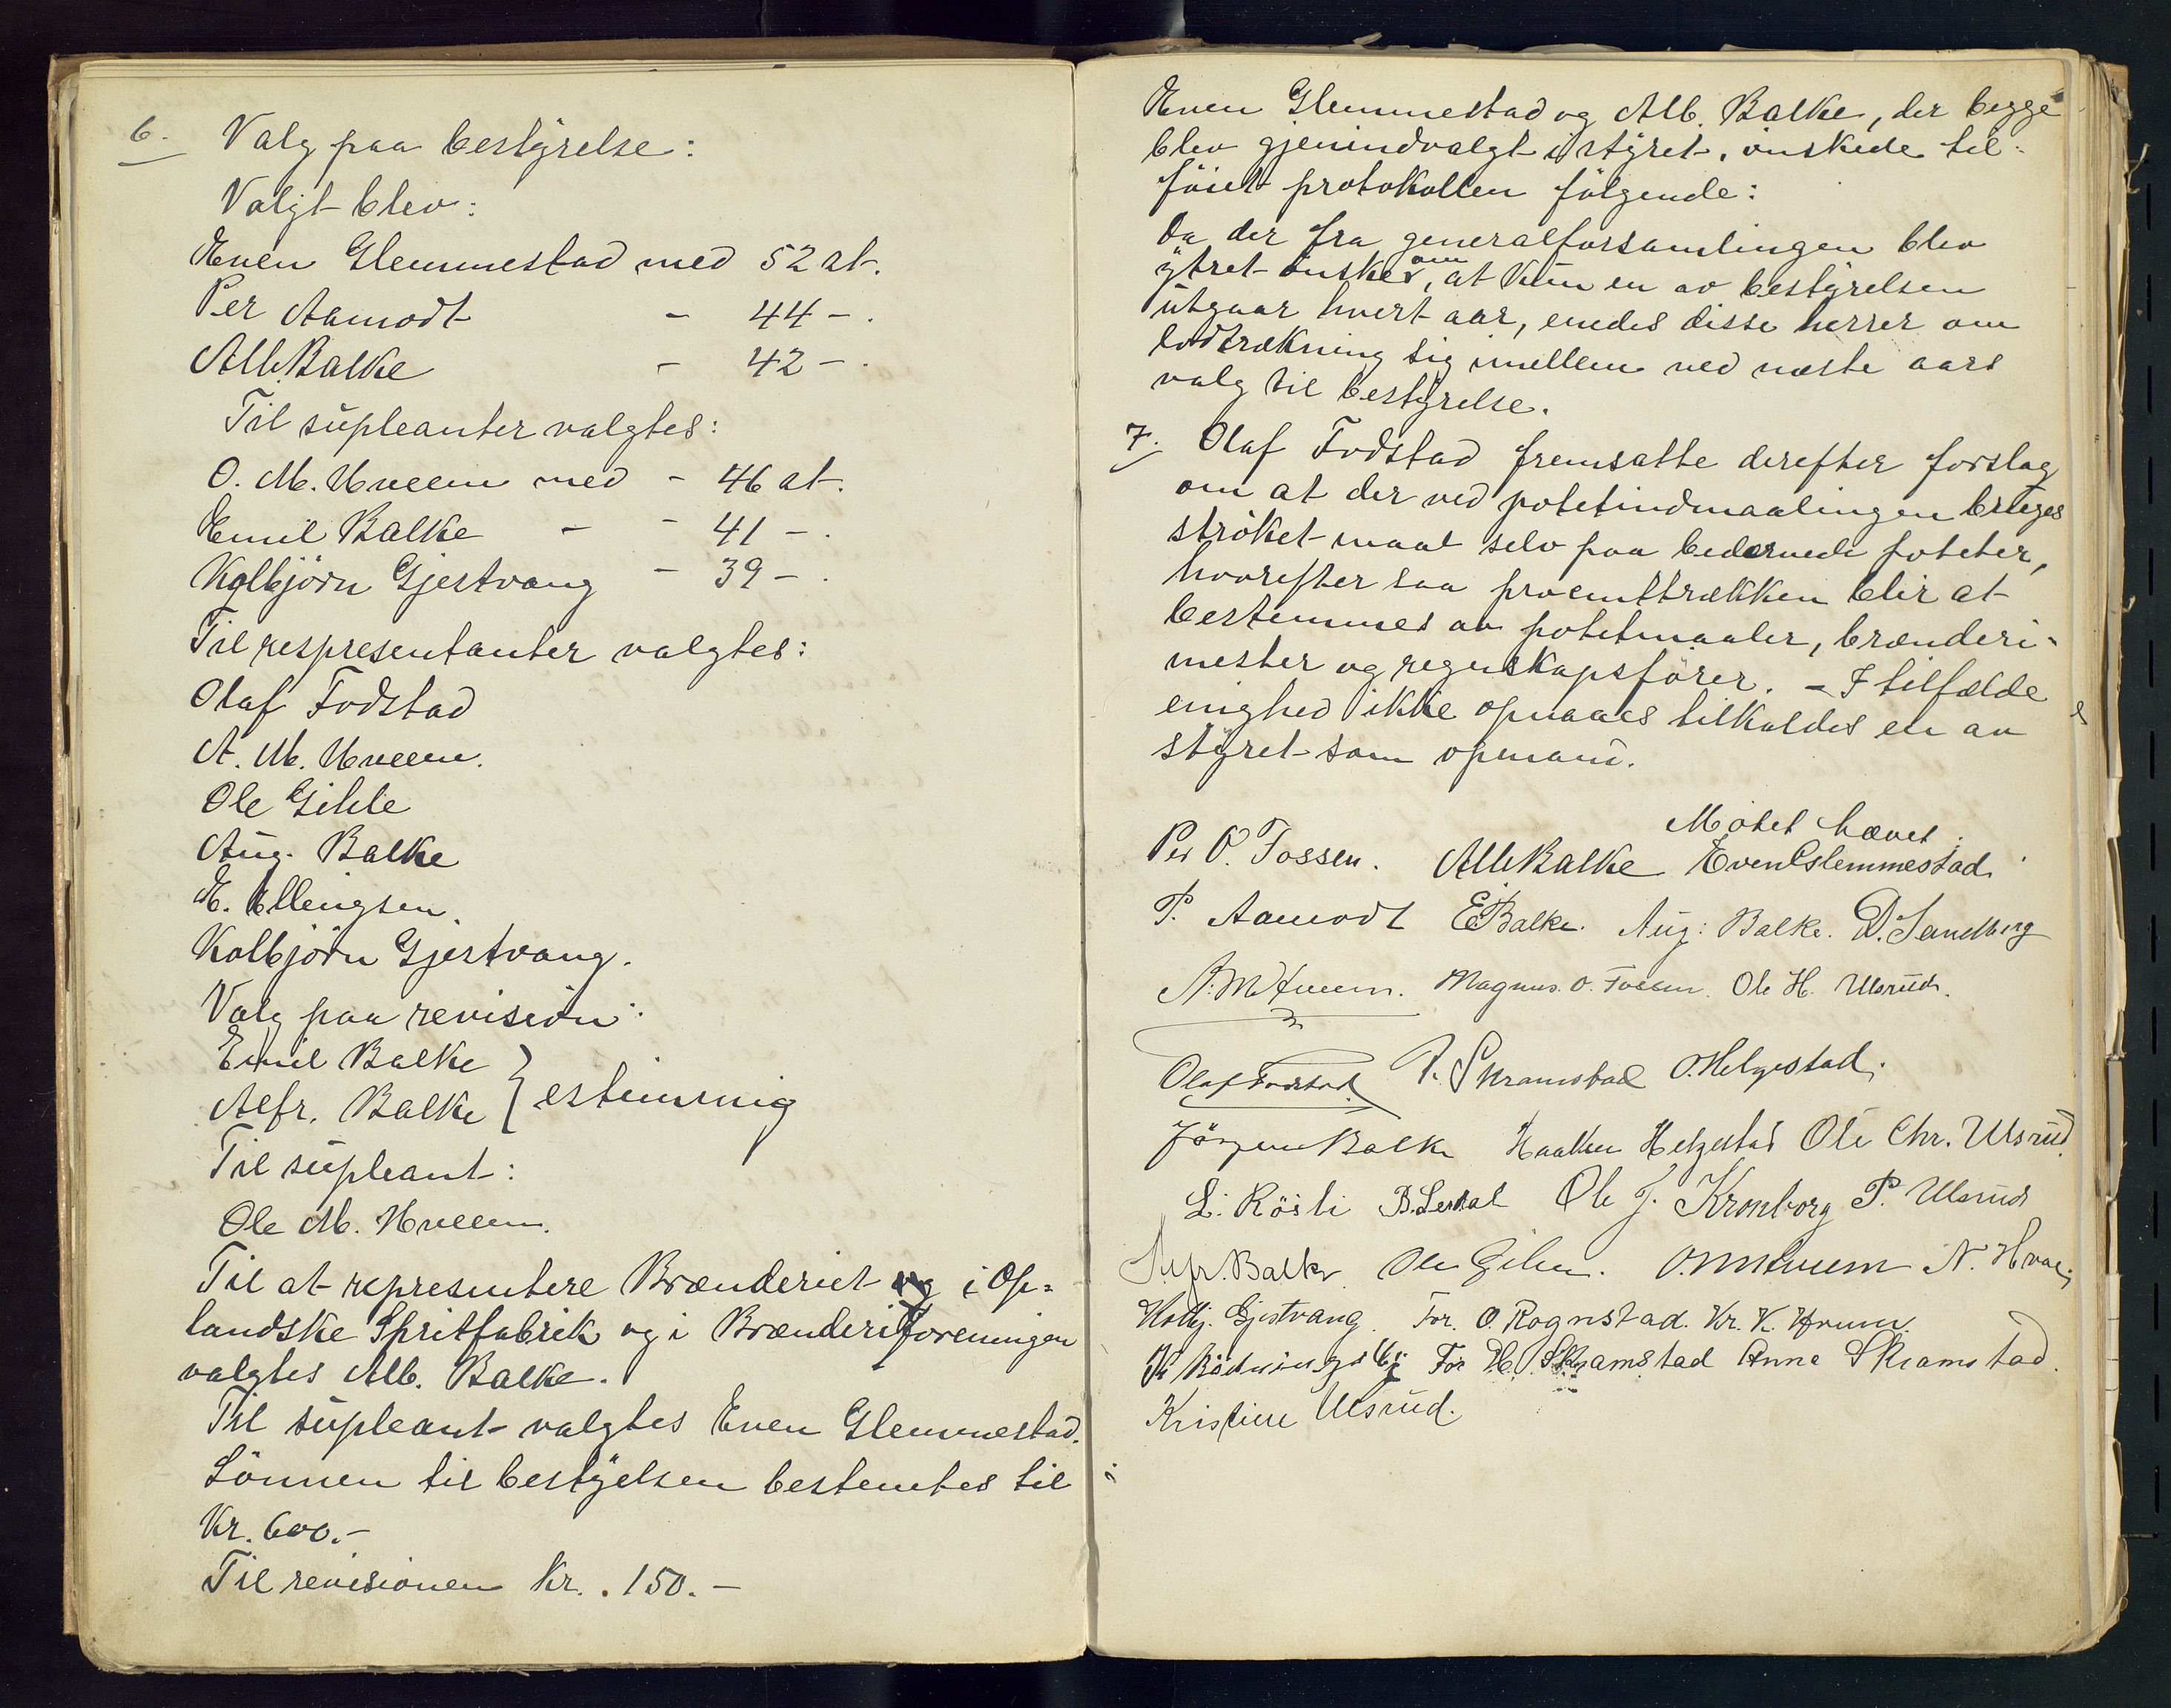 6. Valg paa bestyrelse:
Valgt blev:
Even Glemmestad med 52 st.
Per Aamodt - 44 - .
Alb. Balke - 42 - .
Til supleanter valgtes:
O. M. Hveem med - 46 st.
Emil Balke - - 41 - .
Kolbjörn Gjestvang - 39 - .
Til respresentanter valgtes:
Olaf Fodstad
A. M. Hveem.
Ole Gihle
Aug. Balke
E. Ellingsen.
Kolbjörn Gjestvang.
Valg paa revision:
Emil Balke
Alfr. Balke } estimmig
Til supleant:
Ole M. Hveem.
Til at representere Brænderiet og i Op=
landske Spritfabrik og i Brænderiforeningen
valgtes Alb. Balke.
Til supleant valgtes Even Glemmestad.
Lönnen til bestyelsen bestemtes til
Kr. 600.-
Til revisionen Kr. . 150. -
Even Glemmestad og Alb. Balke, der begge
blev gjenindvalgt i styret, önskede til-
föiet protokollen fölgende:
Da der fra generalforsamlingen blev
ytret önsker om, at kun en av bestyrelsen
utgaar hvert aar, enedes disse herrer om
lodtrækning sig imellem ved næste aars
valg til bestyrelse.
7. Olaf Fodstad fremsatte derefter forslag
om at der ved potetindmaalingen bruges
ströket maal selv paa bedærvede poteter,
hvorefter saa procenttrækken blir at
bestemmes av potetmaaler, brænderi-
mester og regnskapsförer. - I tilfælde
enighed ikke opnaaes tilkaldes en av
styret som opmand.
Mötet hævet.
Per O. Fossen. Alb. Balke Even Glemmestad.
P. Aamodt E. Balke. Aug: Balke. D. Sandberg
A. M. Hveem. Magnus O. Fossen. Ole H. Ulsrud.
Olaf Fodstad. P. Skramstad O. Helgestad.
Jörgen Balke Haaken Helgestad Ole Chr. Ulsrud.
L. Rösli Ole J. Kronborg P. Ulsrud
Alfr. Balke Ole Gihle. O. M. Hveem N. Hval
Kolbj. Gjestvang. For O. Rognstad. Kr. K. Hveem.
For H. Skramstad Anne Skramstad.
Kristine Ulsrud.